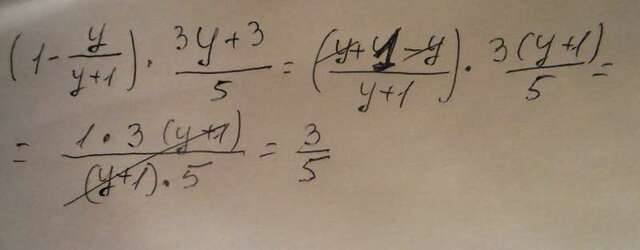 (1 - y/(y+1)) · (3y+3)/5 = ((y+1-y)/(y+1)) · 3(y+1)/5 =
= (1 · 3 (y+1))/((y+1) · 5) = 3/5